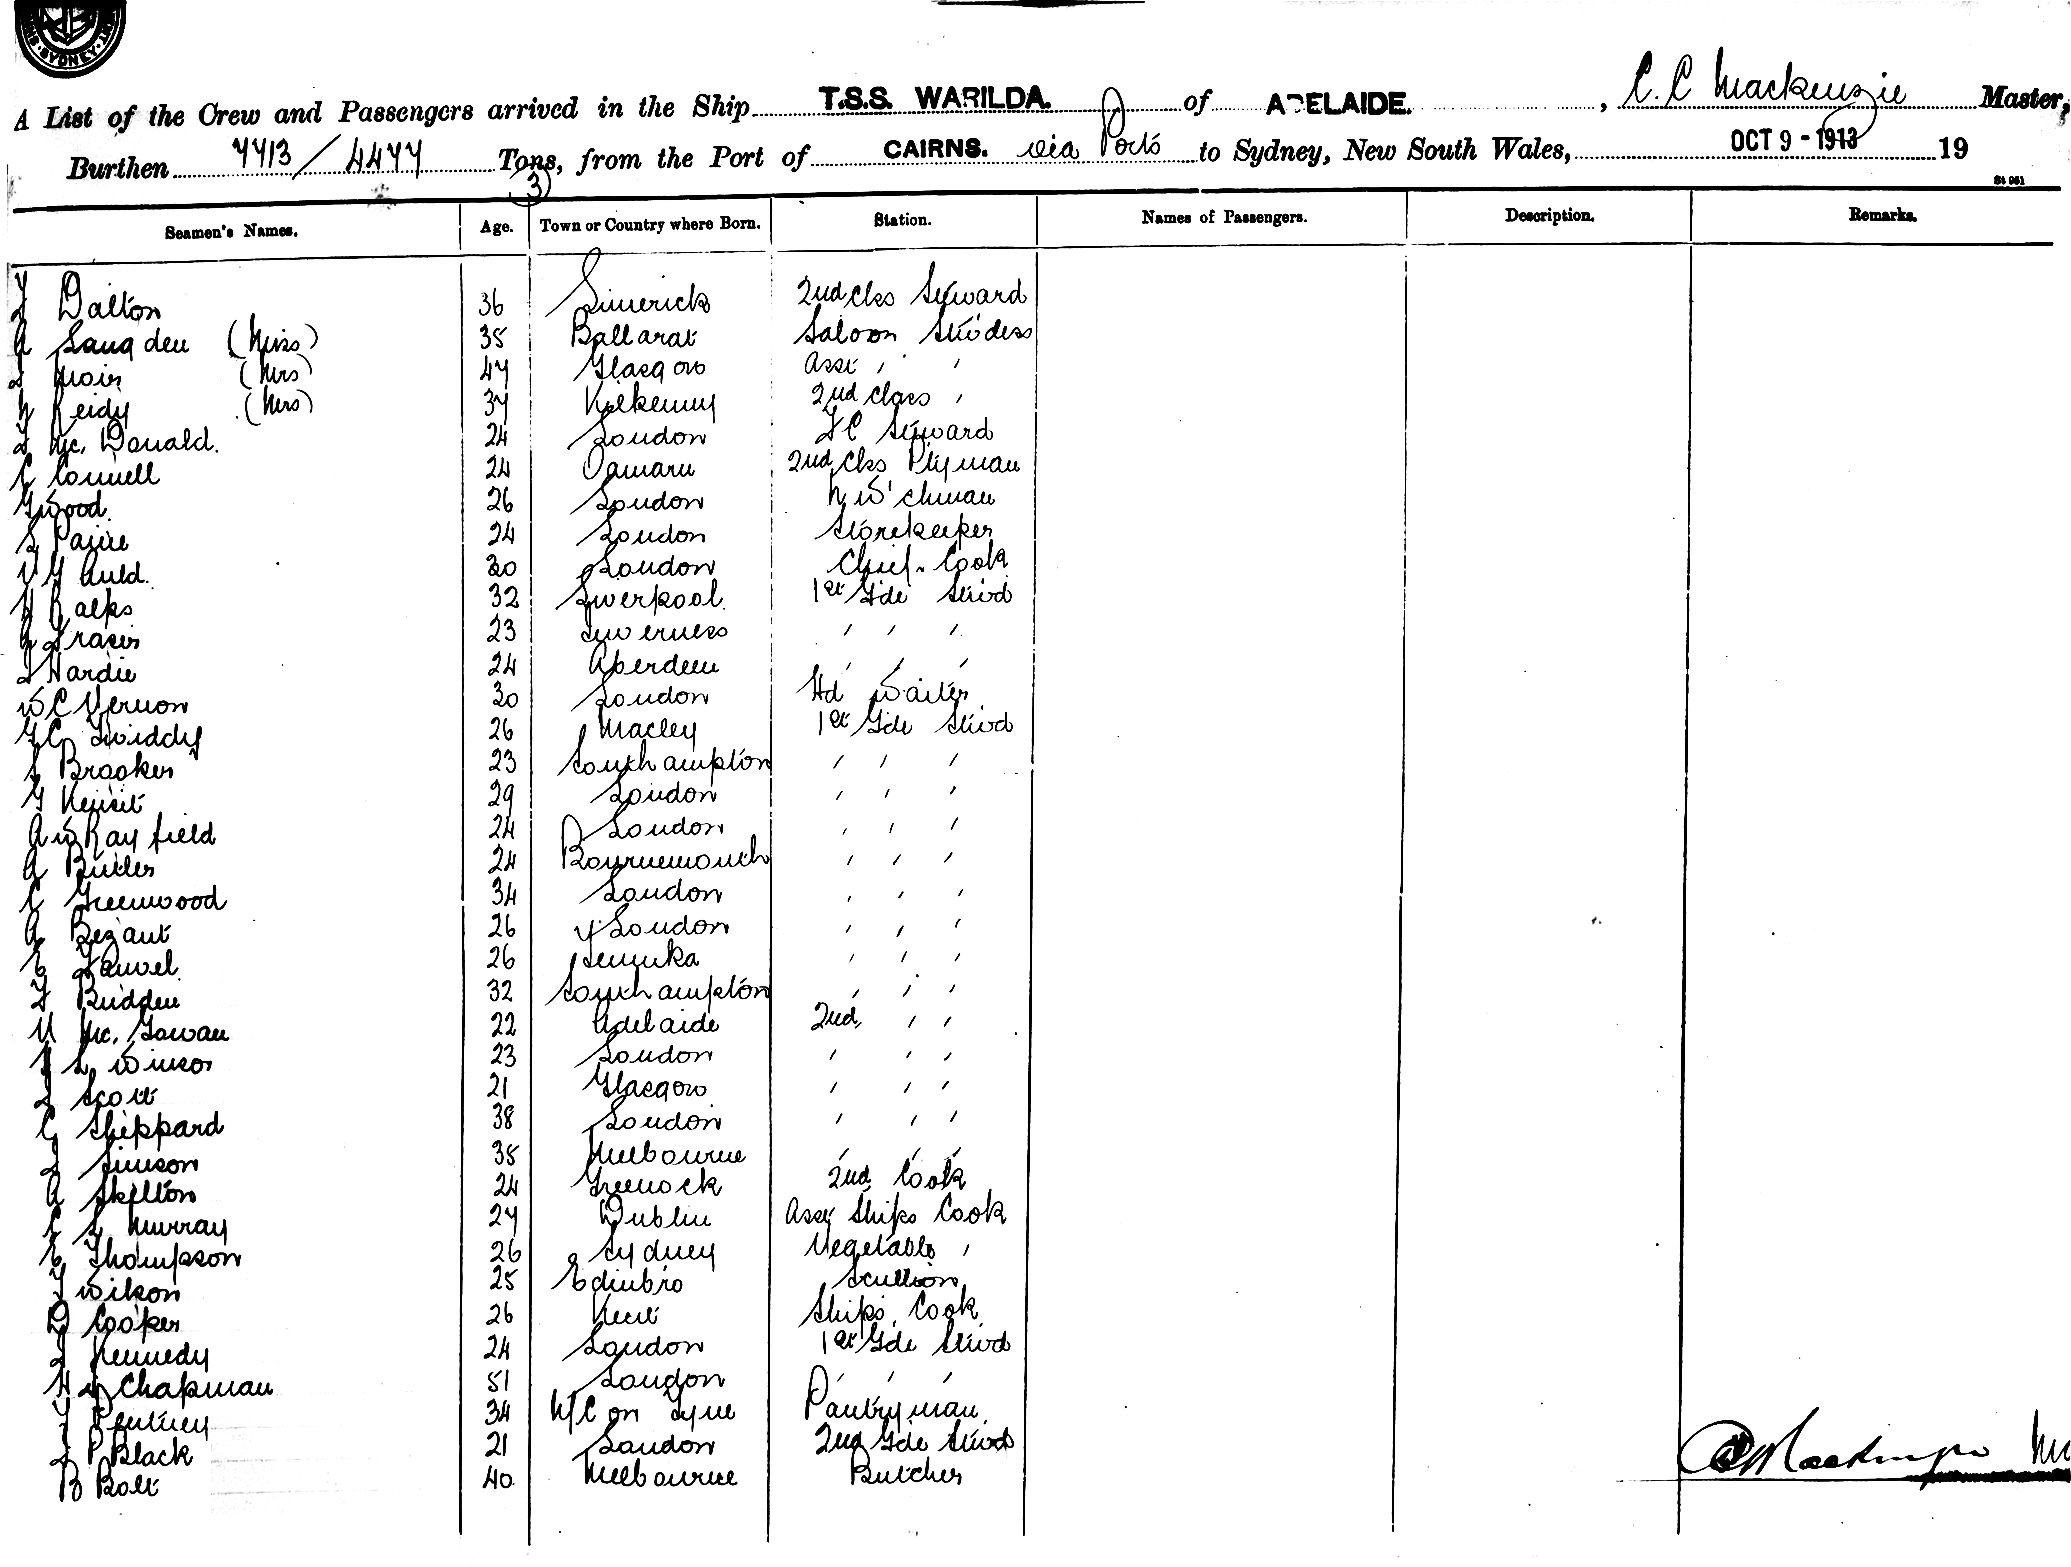 SYDNEY
A List of the Crew and Passengers arrived in the Ship T.S.S. WARILDA. of ADELAIDE. , C. C Mackenzie Master,
Burthen 7713 / 4477 Tons, from the Port of CAIRNS. via Ports to Sydney, New South Wales, OCT 9 - 1913 19
3
St 961
Seamen's Names. Age. Town or Country where Born. Station. Names of Passengers. Description. Remarks.
Dalton 36 Limerick 2nd Clss Steward
A Langden (Miss) 35 Ballarat Saloon Stwdess
Moir (Mrs) 47 Glasgow Asst ' '
Reidy (Mrs) 37 Kilkenny 2nd Class '
Mc. Donald. 24 London Steward
C Connell 24 Oamaru 2nd Clss Ptyman
G Wood. 26 London N W'chman
24 London Storekeeper
Auld. 30 London Chief Cook
Ralps 32 Liverpool. 1st Gde Stwd
Fraser 23 Inverness ' ' '
Hardie 24 Aberdeen ' ' '
W C Vernon 30 London Hd Waiter
G C Twiddy 26 Macley 1st Gde Stwd
Brooker 23 Southampton ' ' '
29 London ' ' '
A W Rayfield 24 London ' ' '
A Butler 24 Bournemouth ' ' '
C Greenwood 34 London ' ' '
A Bezant 26 London ' ' '
E 26 Temuka ' ' '
Budden 32 Southampton ' ' '
Mc. Gowan 22 Adelaide 2nd ' '
Winsor 23 London ' ' '
Scott 21 Glasgow ' ' '
C Sheppard 38 London ' ' '
Simson 35 Melbourne ' ' '
A Skelton 24 Greenock 2nd Cook
C S Murray 27 Dublin Asst Ships Cook
E Thompson 26 Sydney Vegetable '
Wilson 25 Edinbro Scullion
D Cooper 26 Kent Ships Cook
Kennedy 24 London 1st Gde Stwd
Chapman 51 London ' ' '
Pentney 34 N/C on Tyne Pantryman
P Black 21 London 2nd Gde Stwd
B Bolt 40 Melbourne Butcher